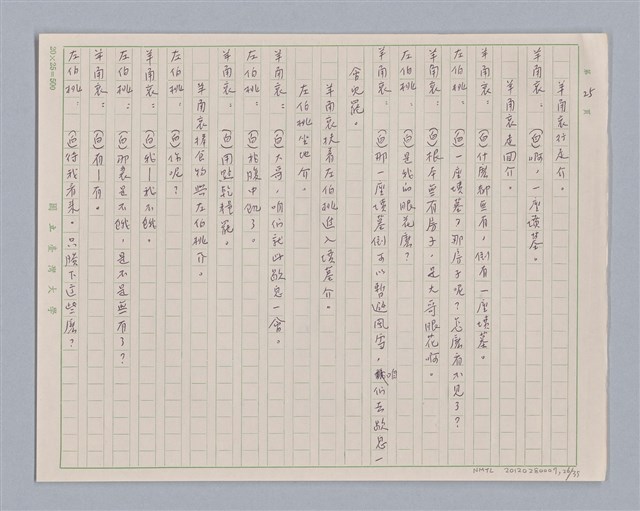 第 25 頁
羊角哀行走介。
羊角哀：(白)啊，一座墳墓。
羊角哀走回介。
羊角哀：(白)什麼都無有，倒有一座墳墓。
左伯桃：(白)一座墳墓？那房子呢？怎麼看不見了？
羊角哀：(白)根本無有房子，是大哥眼花啊。
左伯桃：(白)是我的眼花麼？
羊角哀：(白)那一座墳墓倒可以暫避風雪，咱們去歇息一
會兒罷。
羊角哀扶着左伯桃進入墳墓介。
左伯桃坐地介。
羊角哀：(白)大哥，咱們就此歇息一會。
左伯桃：(白)我腹中飢了。
羊角哀：(白)用點乾糧罷。
羊角哀將食物與左伯桃介。
左伯桃：(白)你呢？
羊角哀：(白)我－我不餓。
左伯桃：(白)那裏是不餓，是不是無有了？
羊角哀：(白)有－有。
左伯桃：(白)待我看來。只賸下這些麼？
20×25=500
國立臺灣大學
NMTL 20120280009,26/35